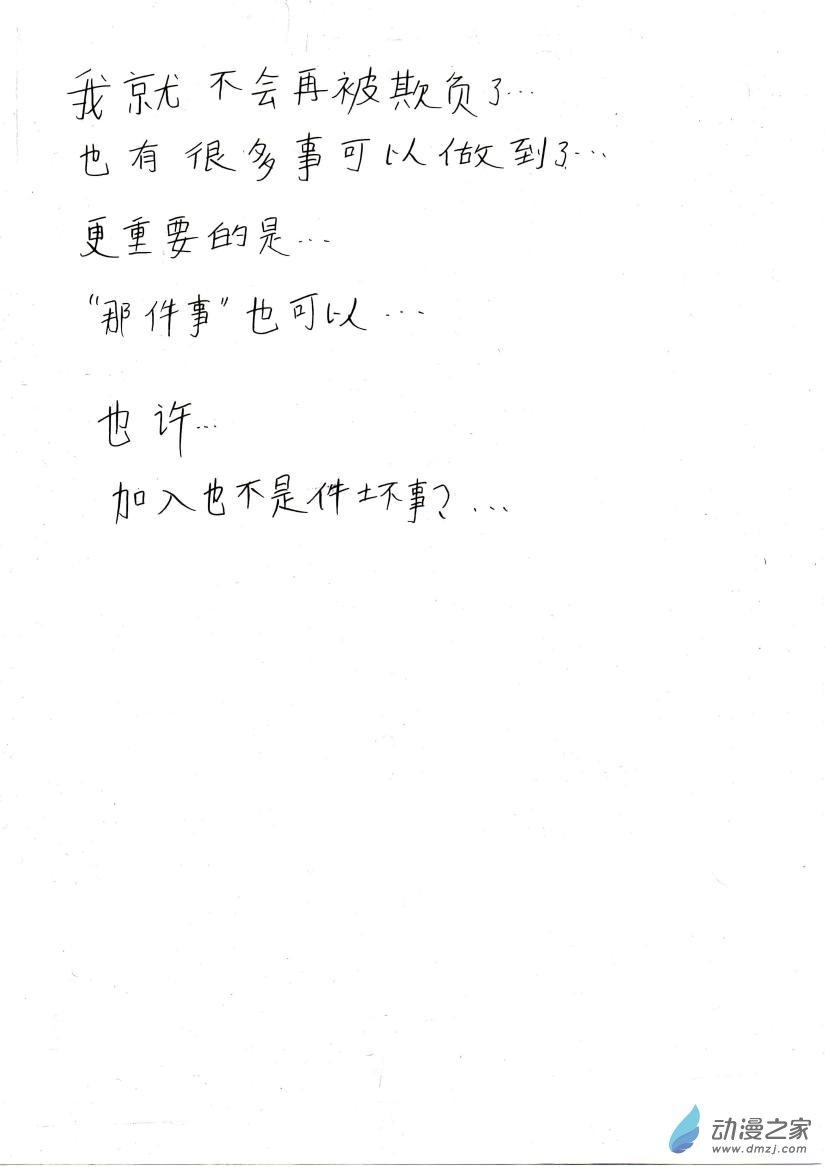 我就不会再被欺负了…
也有很多事可以做到了…
更重要的是…
“那件事”也可以…
也许…
加入也不是件坏事？…
动漫之家
www.dmzj.com